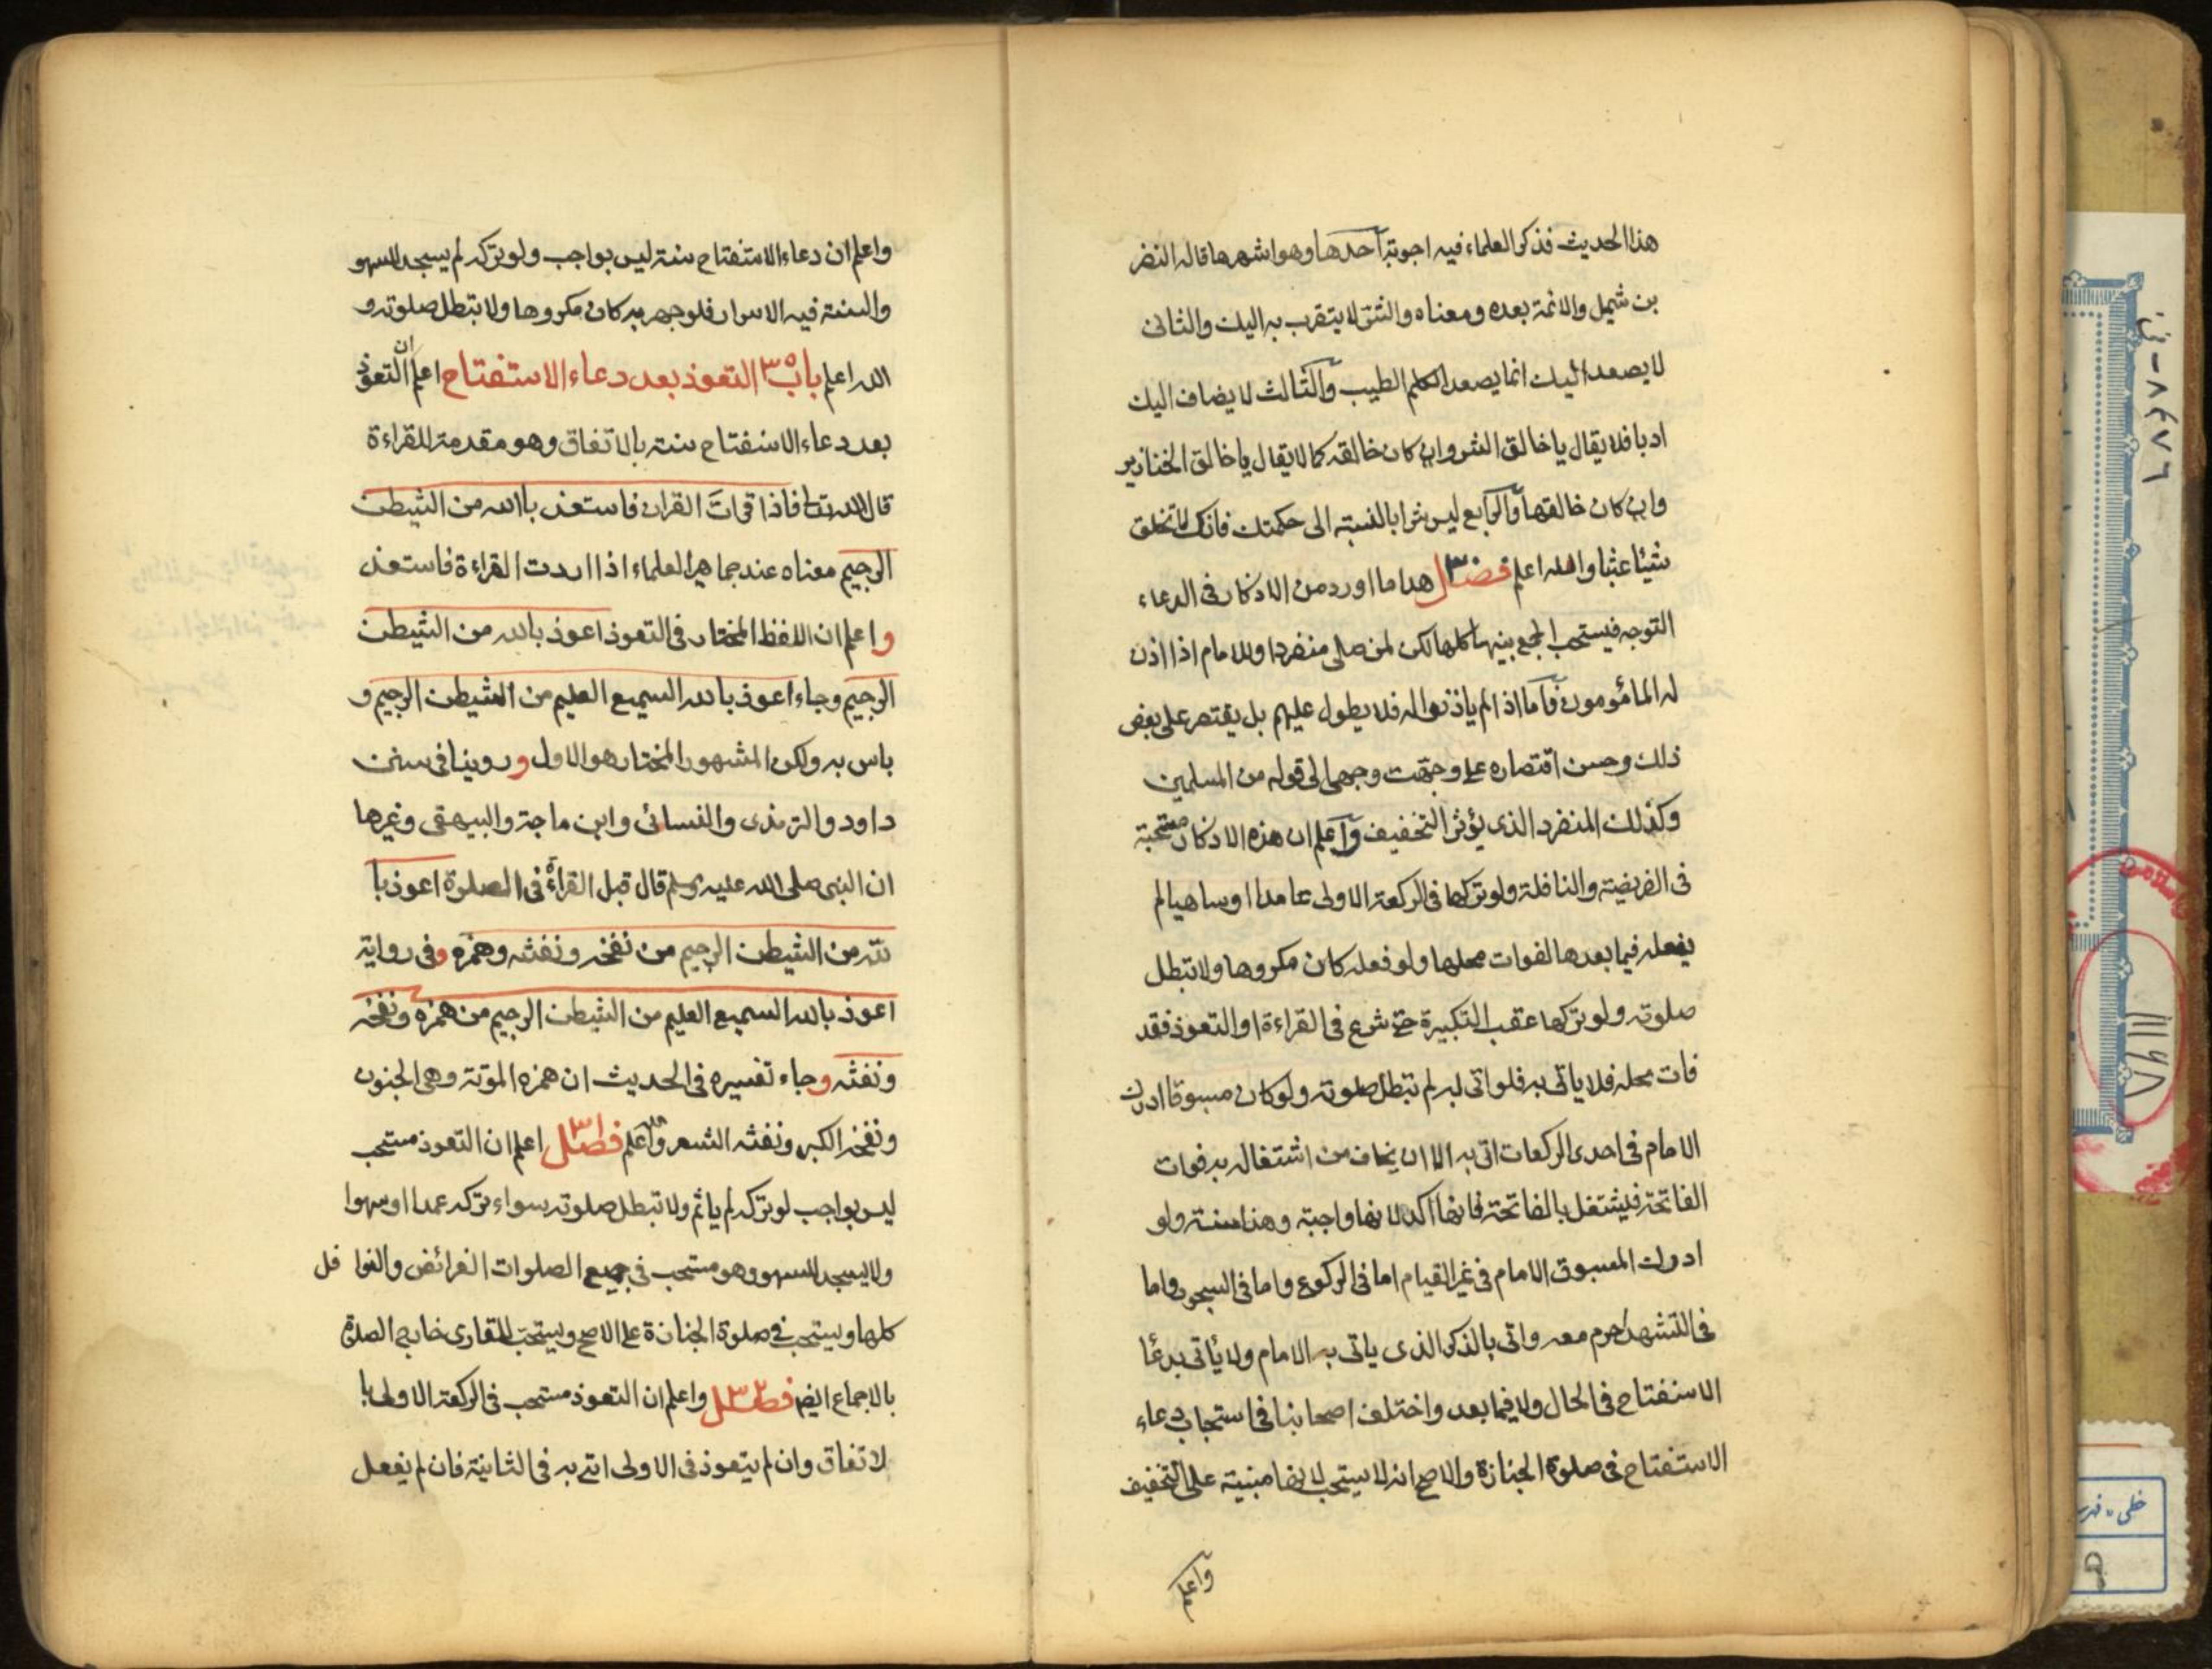 هذا الحديث فذكر العلماء فيه اجوبة احدها وهو اشهرها قاله النضر
بن شميل والائمة بعده ومعناه والشر لا يتقرب به اليك والثانى
لا يصعد اليك انما يصعد الكلم الطيب والثالث لا يضاف اليك
ادبا فلا يقال يا خالق الشر وان كان خالقه كما لا يقال يا خالق الخنازير
وان كان خالقها والرابع ليس شرا بالنسبة الى حكمتك فانك لا تخلق
شيئا عبثا والله اعلم فصل هذا ما اورد من الاذكار فى الدعاء
التوجه فيستحب الجمع بينها كلها لكن لمن صلى منفردا وللامام اذا اذن
له المامومون فاما اذا لم ياذنوا له فلا يطول عليهم بل يقتصر على بعض
ذلك وحسن اقتصاره على وجهت وجهى الى قوله من المسلمين
وكذلك المنفرد الذى يؤثر التخفيف واعلم ان هذه الاذكار مستحبة
فى الفريضة والنافلة ولو تركها فى الركعة الاولى عامدا او ساهيا لم
يفعله فيما بعدها لفوات محلها ولو فعله كان مكروها ولا تبطل
صلوته ولو تركها عقب التكبيرة حتى شرع فى القراءة او التعوذ فقد
فات محله فلا ياتى به فلو اتى به لم تبطل صلوته ولو كان مسبوقا ادرك
الامام فى احدى الركعات اتى به الا ان يخاف من اشتغاله به فوات
الفاتحة فيشتغل بالفاتحة فانها اكد لانها واجبة وهذا سنة ولو
ادرك المسبوق الامام فى غير القيام اما فى الركوع واما فى السجود واما
فى التشهد احرم معه واتى بالذكر الذى ياتى به الامام ولا ياتى بدعا
الاستفتاح فى الحال ولا فيما بعد واختلف اصحابنا فى استحباب دعاء
الاستفتاح فى صلوة الجنازة والاصح انه لا يستحب لانها مبنية على التخفيف
واعلم
واعلم ان دعاء الاستفتاح سنة ليس بواجب ولو تركه لم يسجد للسهو
والسنة فيه الاسرار فلو جهر به كان مكروها ولا تبطل صلوته و
الله اعلم باب ٣٥ التعوذ بعد دعاء الاستفتاح اعلم ان التعوذ
بعد دعاء الاستفتاح سنة بالاتفاق وهو مقدمة للقراءة
قال الله تعا فاذا قرات القران فاستعذ بالله من الشيطن
الرجيم معناه عند جماهير العلماء اذا اردت القراءة فاستعذ
واعلم ان اللفظ المختار فى التعوذ اعوذ بالله من الشيطن
الرجيم وجاء اعوذ بالله السميع العليم من الشيطن الرجيم و
باس به ولكن المشهور المختار هو الاول وروينا فى سنن
داود والترمذى والنسائى وابن ماجة والبيهقى وغيرها
ان النبى صلى الله عليه وسلم قال قبل القراءة فى الصلوة اعوذ با
لله من الشيطن الرجيم من نفخه ونفثه وهمزه وفى رواية
اعوذ بالله السميع العليم من الشيطن الرجيم من همزه ونفخه
ونفثه وجاء تفسيره فى الحديث ان همزه الموتة وهى الجنون
ونفخه الكبر ونفثه الشعر والله اعلم فصل ٣١ اعلم ان التعوذ مستحب
ليس بواجب لو تركه لم ياثم ولا تبطل صلوته سواء تركه عمدا او سهوا
ولا يسجد للسهو وهو مستحب فى جميع الصلوات الفرائض والنوا فل
كلها ويستحب فى صلوة الجنازة على الاصح ويستحب للقارى خارج الصلوة
بالاجماع ايضا فصل ٣٢ واعلم ان التعوذ مستحب فى الركعة الاولى با
لاتفاق وان لم يتعوذ فى الاولى اتى به فى الثانية فان لم يفعل
١١١٦٨